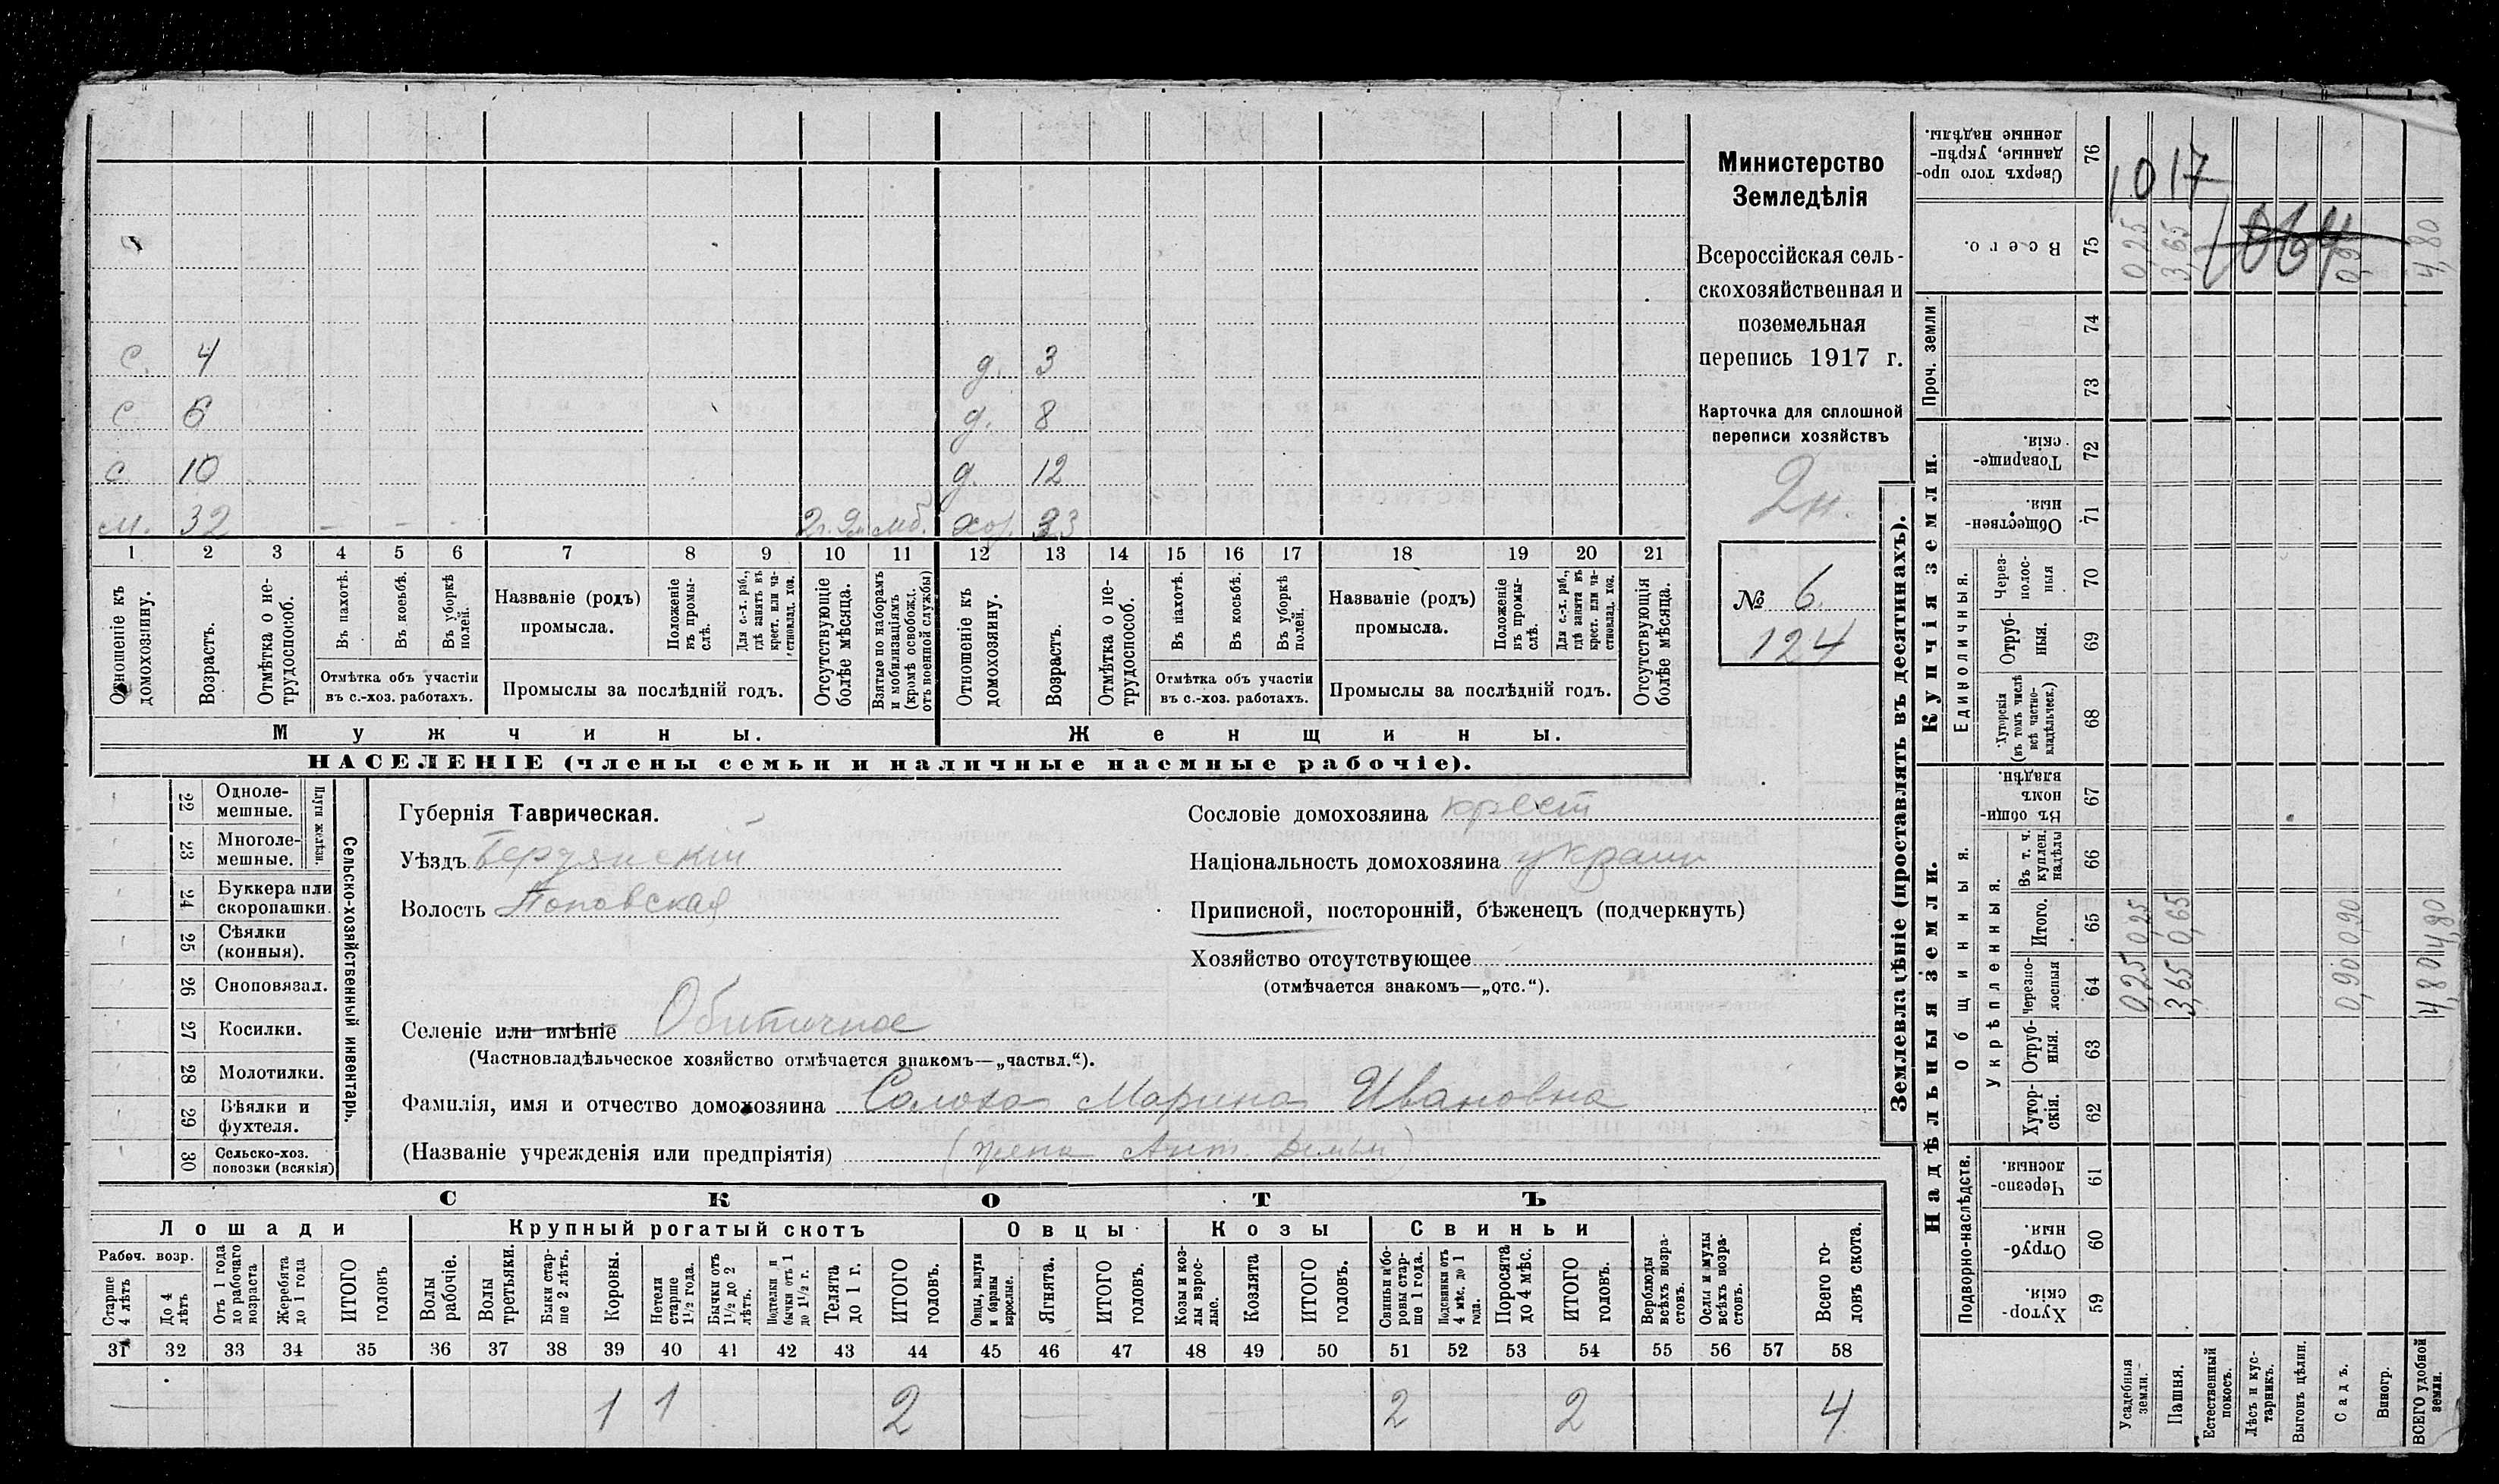 Министерство
Земледѣлія
Всероссійская сель-
скохозяйственная и
поземельная
перепись 1917 г.
Карточка для сплошной
переписи хозяйствъ
2н.
№ 6.
124
с. 4 д. 3
с. 6 д. 8
с. 10 д. 12
м. 32 – – – 2г. мб. хоз. 33
1 2 3 4 5 6 7 8 9 10 11 12 13 14 15 16 17 18 19 20 21
Отношеніе къ домохозяину.
Возрастъ.
Отмѣтка о не-трудоспособ.
Въ пахотѣ.
Въ косьбѣ.
Въ уборкѣ полей.
Отмѣтка объ участіи
въ с.-хоз. работахъ.
Названіе (родъ)
промысла.
Положеніе въ промы-слѣ.
Для с.-х. раб., гдѣ занятъ въ крест. или ча-стновлад. хоз.
Промыслы за послѣдній годъ.
Отсутствующіе болѣе мѣсяца.
Взятые по наборамъ и мобилизаціямъ (кромѣ освобожд. отъ военной службы)
Отношеніе къ домохозяину.
Возрастъ.
Отмѣтка о не-трудоспособ.
Въ пахотѣ.
Въ косьбѣ.
Въ уборкѣ полей.
Отмѣтка объ участіи
въ с.-хоз. работахъ.
Названіе (родъ)
промысла.
Положеніе въ промы-слѣ.
Для с.-х. раб., гдѣ занята въ крест. или ча-стновлад. хоз.
Промыслы за послѣдній годъ.
Отсутствующія болѣе мѣсяца.
Мужчины. Женщины.
НАСЕЛЕНІЕ (члены семьи и наличные наемные рабочіе).
Сельско-хозяйственный инвентарь.
Плуги желѣзн.
22 Одноле-мешные.
23 Многоле-мешные.
24 Буккера или скоропашки.
25 Сѣялки (конныя).
26 Сноповязал.
27 Косилки.
28 Молотилки.
29 Вѣялки и фухтеля.
30 Сельско-хоз. повозки (всякія)
Губернія Таврическая.
Уѣздъ Бердянскій
Волость Поповская
Сословіе домохозяина крест
Національность домохозяина украин
Приписной, посторонній, бѣженецъ (подчеркнуть)
Хозяйство отсутствующее
(отмѣчается знакомъ—„отс.“).
Селеніе или имѣніе Обиточное
(Частновладѣльческое хозяйство отмѣчается знакомъ—„частвл.“).
Фамилія, имя и отчество домохозяина Солоха Марина Ивановна
(Названіе учрежденія или предпріятія) (жена Ант. Демьян)
СКОТЪ
Лошади Крупный рогатый скотъ Овцы Козы Свиньи
Рабоч. возр.
Старше 4 лѣтъ
До 4 лѣтъ
Отъ 1 года до рабочаго возраста
Жеребята до 1 года
ИТОГО головъ
Волы рабочіе.
Волы третьяки.
Быки стар-ше 2 лѣтъ.
Коровы.
Нетели старше 1½ года.
Бычки отъ 1½ до 2 лѣтъ.
Подтелки и бычки отъ 1 до 1½ г.
Телята до 1 г.
ИТОГО головъ.
Овцы, валухи и бараны взрослые.
Ягнята.
ИТОГО головъ.
Козы и коз-лы взрос-лые.
Козлята
ИТОГО головъ.
Свиньи и бо-ровы стар-ше 1 года.
Подсвинки отъ 4 мѣс. до 1 года.
Поросята до 4 мѣс.
ИТОГО головъ.
Верблюды всѣхъ возра-стовъ.
Ослы и мулы всѣхъ возра-стовъ.
Всего го-ловъ скота.
31 32 33 34 35 36 37 38 39 40 41 42 43 44 45 46 47 48 49 50 51 52 53 54 55 56 57 58
1 1 2 2 2 4
Землевладѣніе (проставлять въ десятинахъ).
Сверхъ того про-данные, укрѣп-ленные надѣлы. 76
1017
Всего. 75 0,25 3,65 1064 0,90 4,80
Проч. земли 74
73
Купчія земли.
Товарище-скія. 72
Обществен-ныя. 71
Единоличныя.
Через-полос-ныя 70
Отруб-ныя. 69
Хуторскія (въ томъ числѣ всѣ частно-владѣльческ.) 68
Надѣльныя земли.
Общинныя.
Въ общин-номъ владѣн. 67
Укрѣпленныя.
Въ т. ч. куплен. надѣлы 66
Итого. 65 0,25 0,65 0,90 4,80
Черезпо-лосныя 64 0,25 3,65 0,90 4,80
Отруб-ныя. 63
Хутор-скія. 62
Подворно-наслѣдств.
Черезпо-лосныя. 61
Отруб-ныя 60
Хутор-скія. 59
Усадебныя земли.
Пашня.
Естественный покосъ.
Лѣсъ и кус-тарникъ.
Выгонъ цѣлин.
Садъ.
Виногр.
ВСЕГО удобной земли.